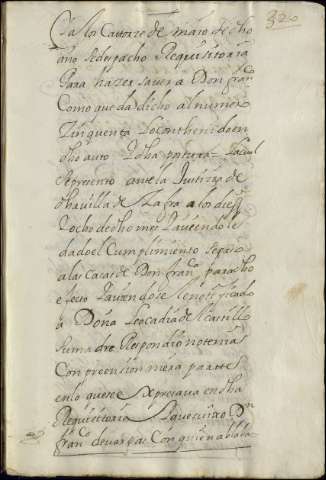 320
En los Catorze de mayo de dho
año se despacho Requisitoria
Para hazer saver a Don franco
Como queda dicho al numero
Zinquenta Lo Conthenido en
dho auto Y dha postura = La cual
se presento ante la Justizia de
dha villa de a los diez
Y ocho de dho mes Y aviendole
dado el Cumplimiento se paso
a las Cassas de Don franco para dho
efecto Y aviendose notificado
a Doña Leocadia del Castillo
su madre Respondio no tenia
Con preension ni era parte
en lo que se Expresava en dha
Requisitoria Y que su hixo Dn
franco de vargas Con quien ablava